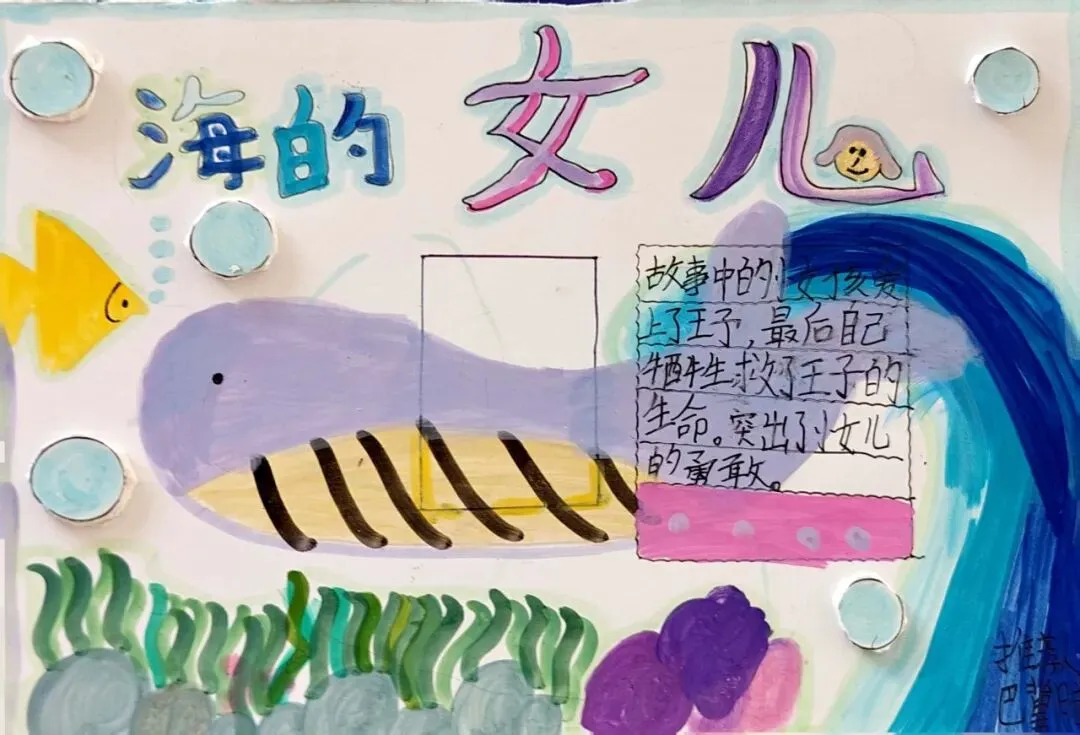 海的女儿
故事中的小女孩爱
上了王子，最后自己
牺牲救了王子的
生命。突出了小女儿
的勇敢。
推荐人